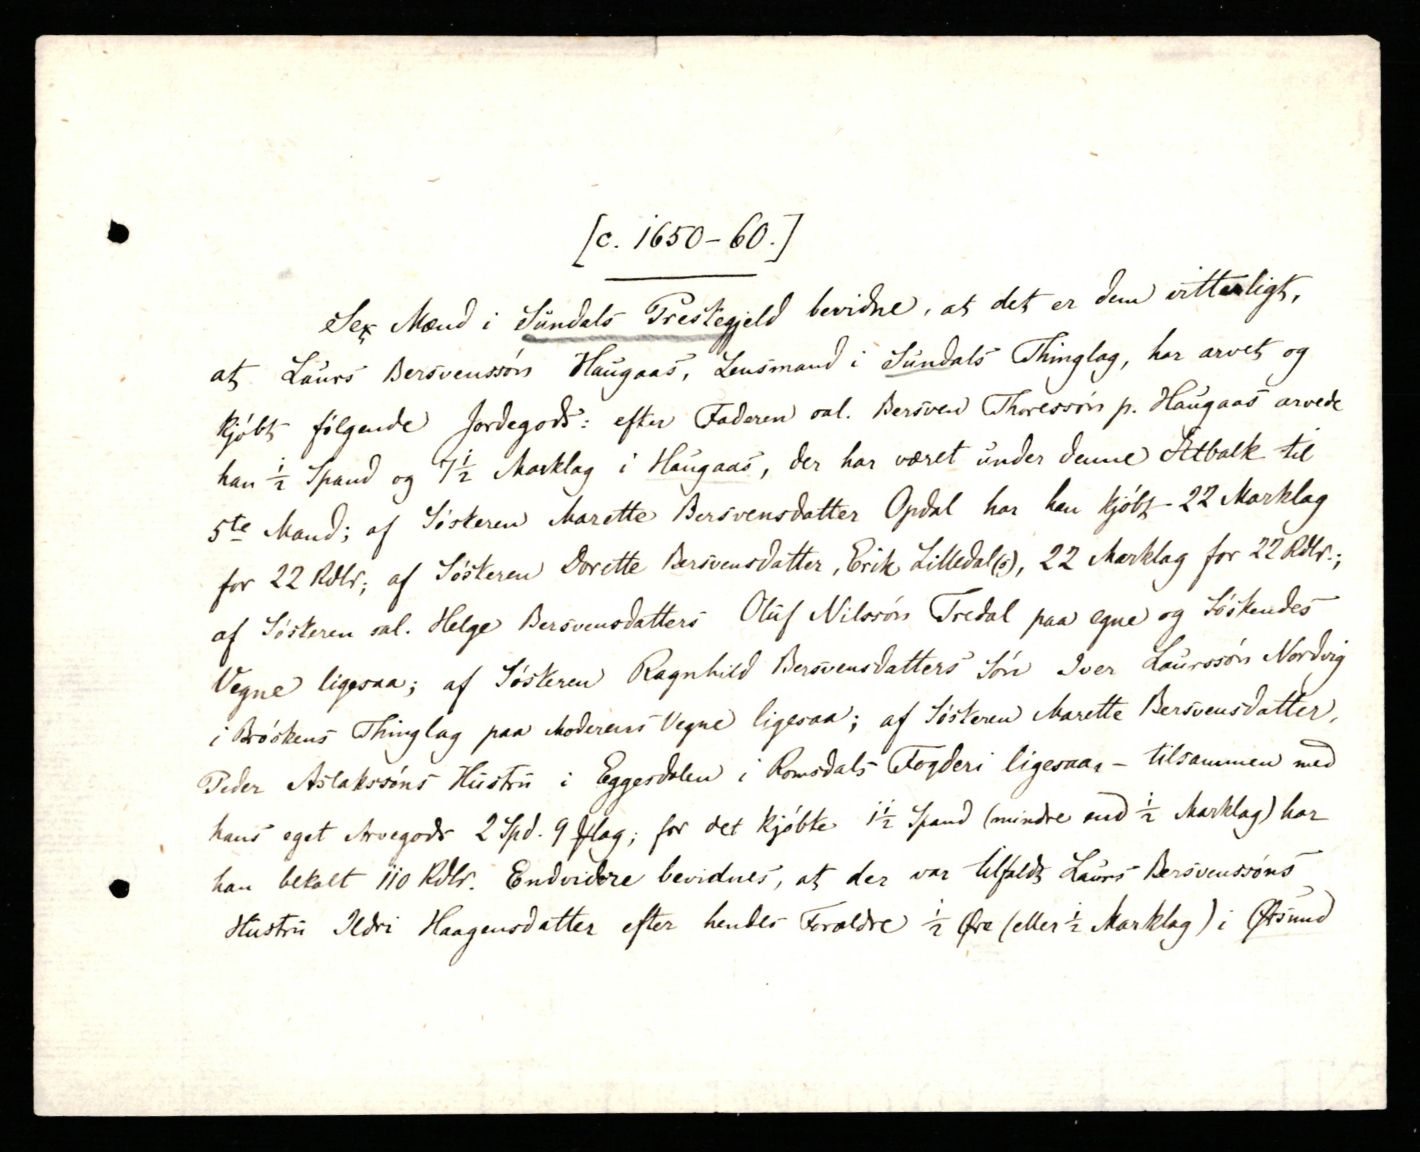 [c. 1650–60.]
Sex Mænd i Sundals Prestegjeld bevidne, at det er dem vitterligt,
at Laurs Bersvenssøn Haugaas, Lensmand i Sundals Thinglag, har arvet og
kjøbt følgende Jordegods: efter Faderen sal. Bersven Thoressøn p. Haugaas arvede
han ½ Spand og 7½ Marklag i Haugaas, der har været under denne Ætbalk til
5te Mand; af Søsteren Marette Bersvensdatter Opdal har han kjøbt 22 Marklag
for 22 Rdlr; af Søsteren Dorette Bersvensdatter, Erik Lilledal(s), 22 Marklag for 22 Rdlr.;
af Søsteren sal. Helge Bersvensdatters Oluf Nilssøn Tredal paa egne og Søskendes
Vegne ligesaa; af Søsteren Ragnhild Bersvensdatters Søn Iver Laurssøn Nordvig
i Brøskens Thinglag paa Moderens Vegne ligesaa; af Søsteren Marette Bersvensdatter,
Peder Aslakssøns Hustru i Eggesdalen i Romsdals Fogderi ligesaa, – tilsammen med
hans eget Arvegods 2 Spd. 9 Mlag; for det kjøbte 1½ Spand (mindre end ½ Marklag) har
han betalt 110 Rdlr. Endvidere bevidnes, at der var tilfaldt Laurs Bersvenssøns
Hustru Ildri Haagensdatter efter hendes Forældre ½ Øre (eller ½ Marklag) i Ørsund